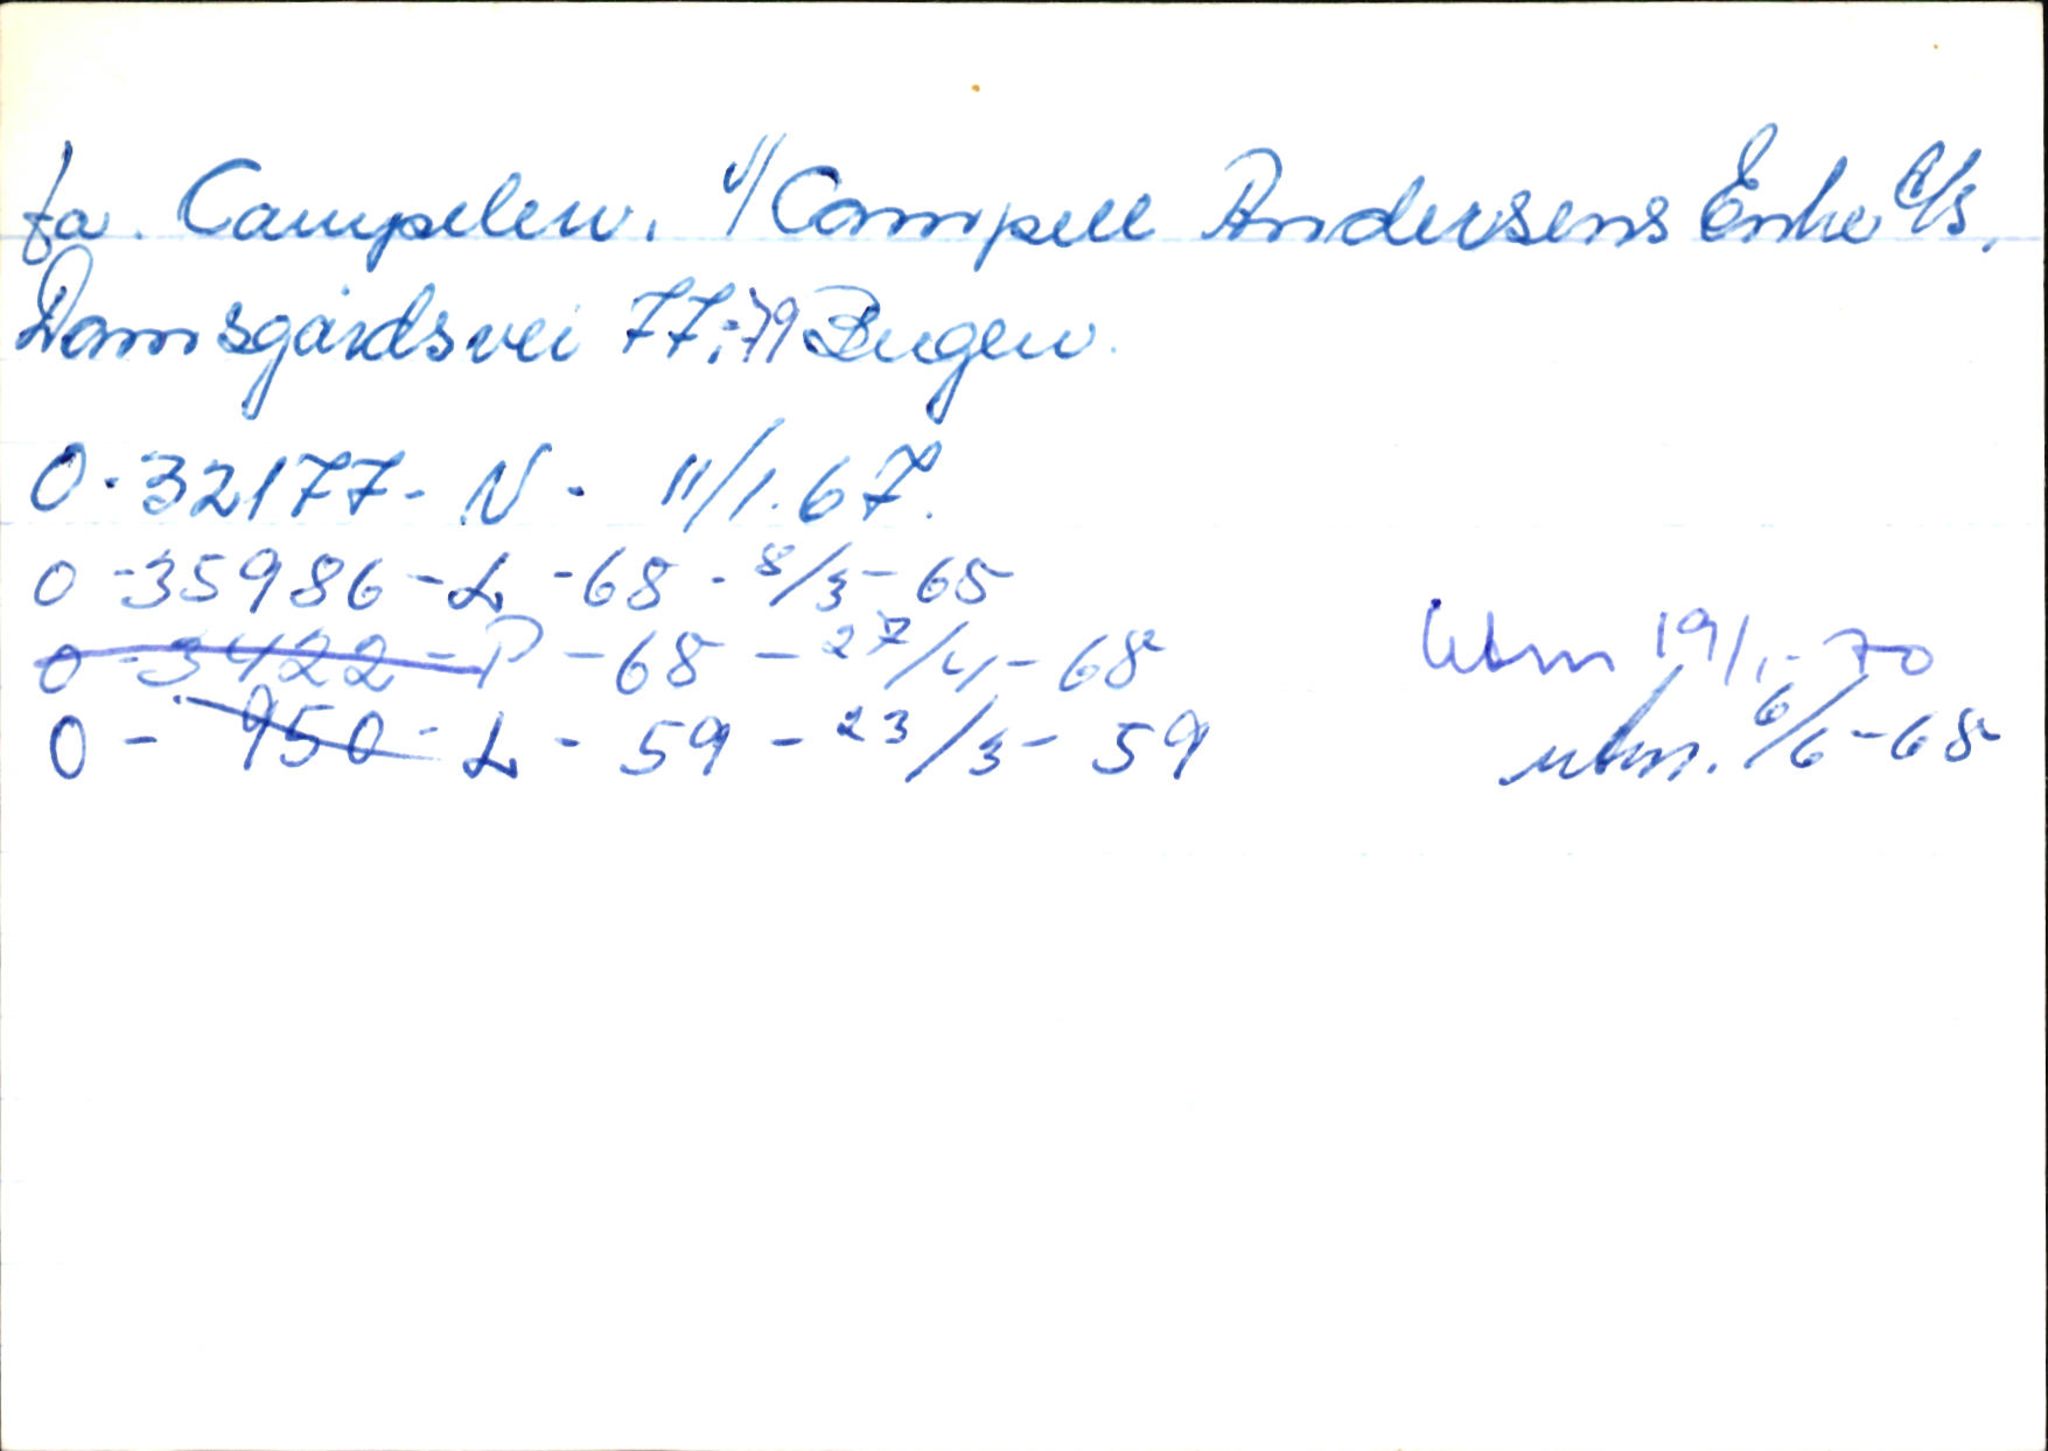 fa. Campelen. v/Campell Andersens Enke A/S.
Damsgårdsvei 77-79 Bergen.
O-32177-N- 11/1.67.
O-35986-L-68-8/3-65
O-3422-P-68-27/4-68 Utm 19/1-70
O-950-L-59-23/3-59 utm. 6/6-68